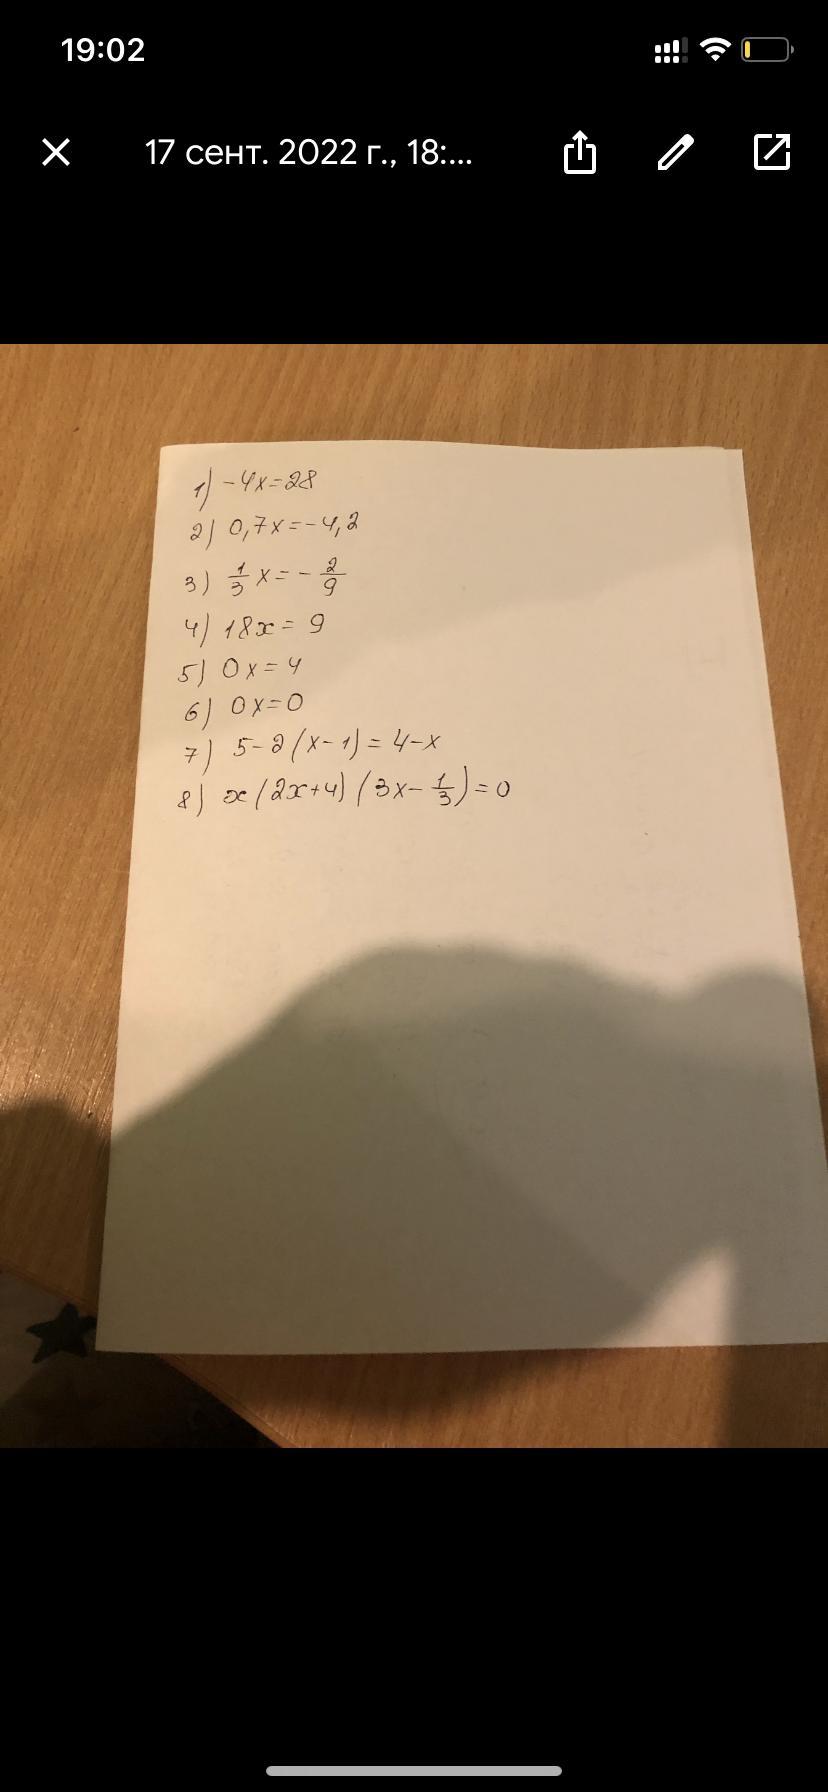 19:02
17 сент. 2022 г., 18:...
1) -4x=28
2) 0,7x=-4,2
3) 1/3 x=-2/9
4) 18x=9
5) 0x=4
6) 0x=0
7) 5-2(x-1)=4-x
8) x(2x+4)(3x-1/3)=0